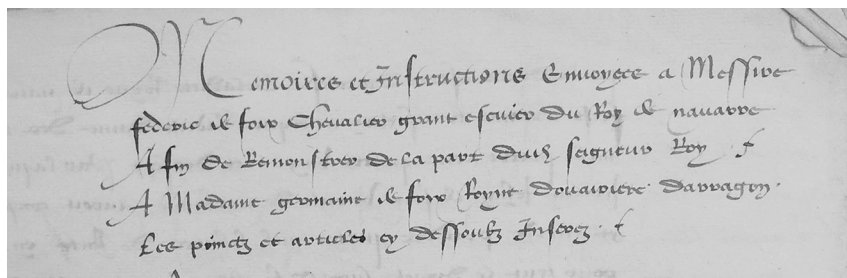 Memoires et Instructions Envoyees a Messire
federic de foix Chevalier grant escuier du Roy de navarre
A fin de Remonstrer de la part dud seigneur Roy
A Madame germaine de foix Royne douairiere darragon
Les poinctz et articles cy dessoubz Inserez